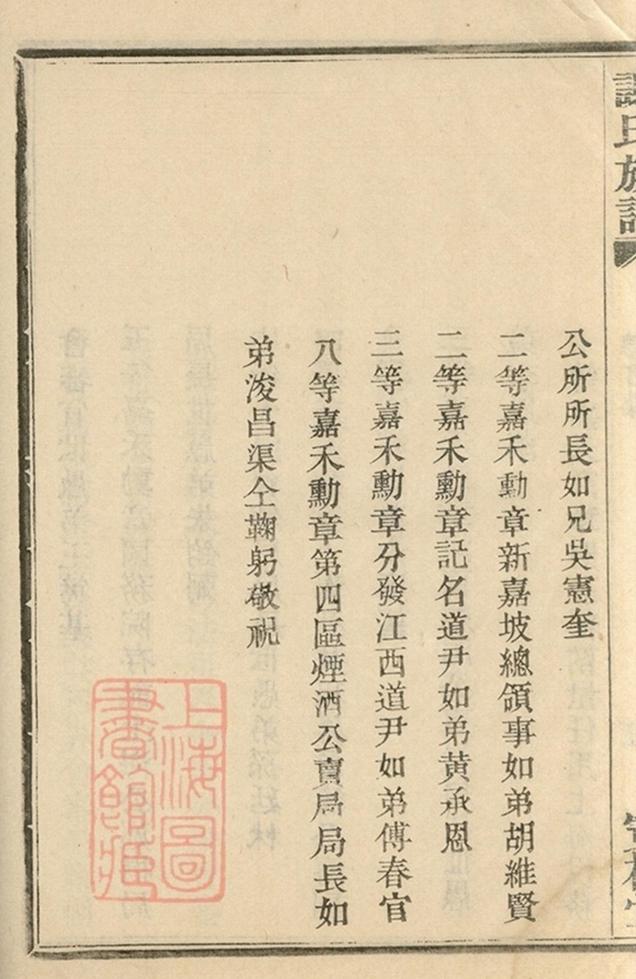 公所所長如兄吳憲奎
二等嘉禾勳章新嘉坡總領事如弟胡維賢
二等嘉禾勳章記名道尹如弟黃承恩
三等嘉禾勳章分發江西道尹如弟傅春官
八等嘉禾勳章第四區煙酒公賣局局長如
弟浚昌渠仝鞠躬敬祝
上海圖
書館藏